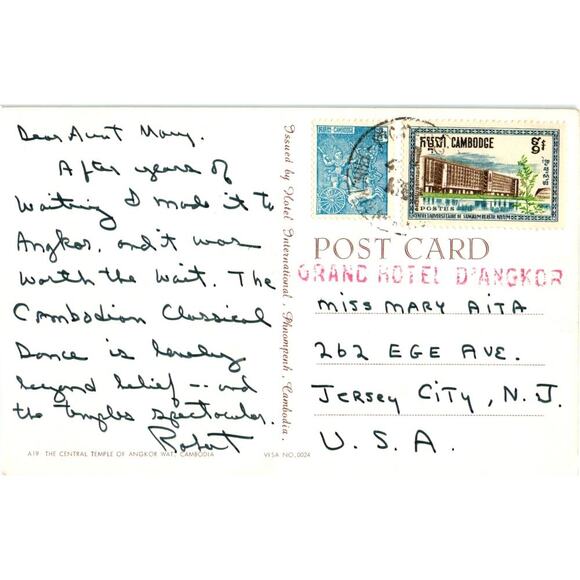 Dear Aunt Mary,
After years of
waiting I made it to
Angkor, and it was
worth the wait. The
Cambodian Classical
Dance is lovely
beyond belief -- and
the temples spectacular.
Robert
A19 THE CENTRAL TEMPLE OF ANGKOR WAT, CAMBODIA
VISA NO. 0024
Issued by Hotel International, Phnompenh, Cambodia.
POSTES - CAMBODGE
កម្ពុជា CAMBODGE
POSTES
CENTRE UNIVERSITAIRE DE SANGKUM REASTR NIYUM
POST CARD
GRAND HOTEL D'ANGKOR
MISS MARY AITA
262 EGE AVE.
JERSEY CITY, N.J.
U.S.A.